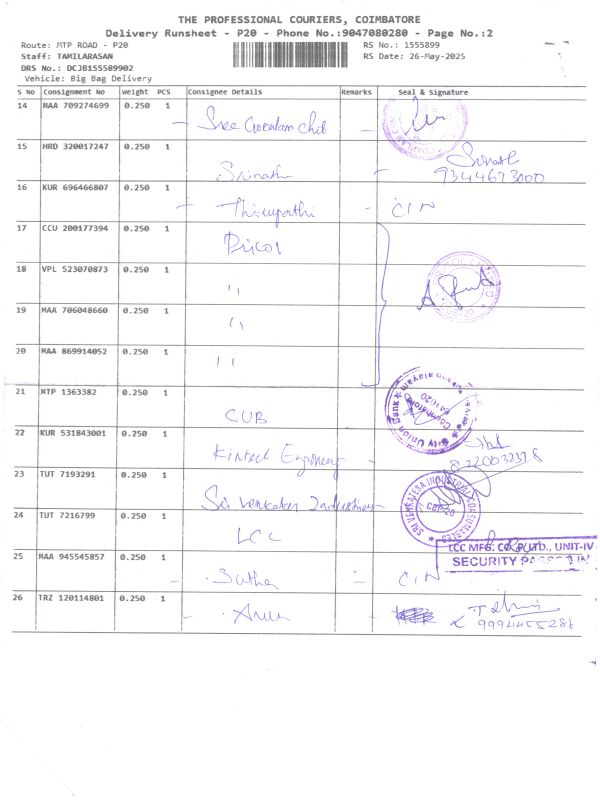 THE PROFESSIONAL COURIERS, COIMBATORE
Delivery Runsheet - P20 - Phone No.:9047080280 - Page No.:2
Route: MTP ROAD - P20 RS No.: 1555899
Staff: TAMILARASAN RS Date: 26-May-2025
DRS No.: DCJB155589902
Vehicle: Big Bag Delivery
S No Consignment No Weight PCS Consignee Details Remarks Seal & Signature
14 MAA 709274699 0.250 1
15 HRD 320017247 0.250 1 Srinath Srinath
9344673000
16 KUR 696466807 0.250 1 Thirupathi CIN
17 CCU 200177394 0.250 1 Pricol
18 VPL 523070873 0.250 1 "
19 MAA 706048660 0.250 1 "
20 MAA 869914052 0.250 1 "
21 MTP 1363382 0.250 1 CUB
22 KUR 531843001 0.250 1 Kintech
23 TUT 7193291 0.250 1 Sri Venkatesa Industries
SRI VENKATESA INDUSTRIAL
CBE-20
24 TUT 7216799 0.250 1 LCC
LCC MFG. CO. P LTD., UNIT-IV
SECURITY
25 MAA 945545857 0.250 1 Sutha CIN
26 TRZ 120114801 0.250 1 Arun
9994455281